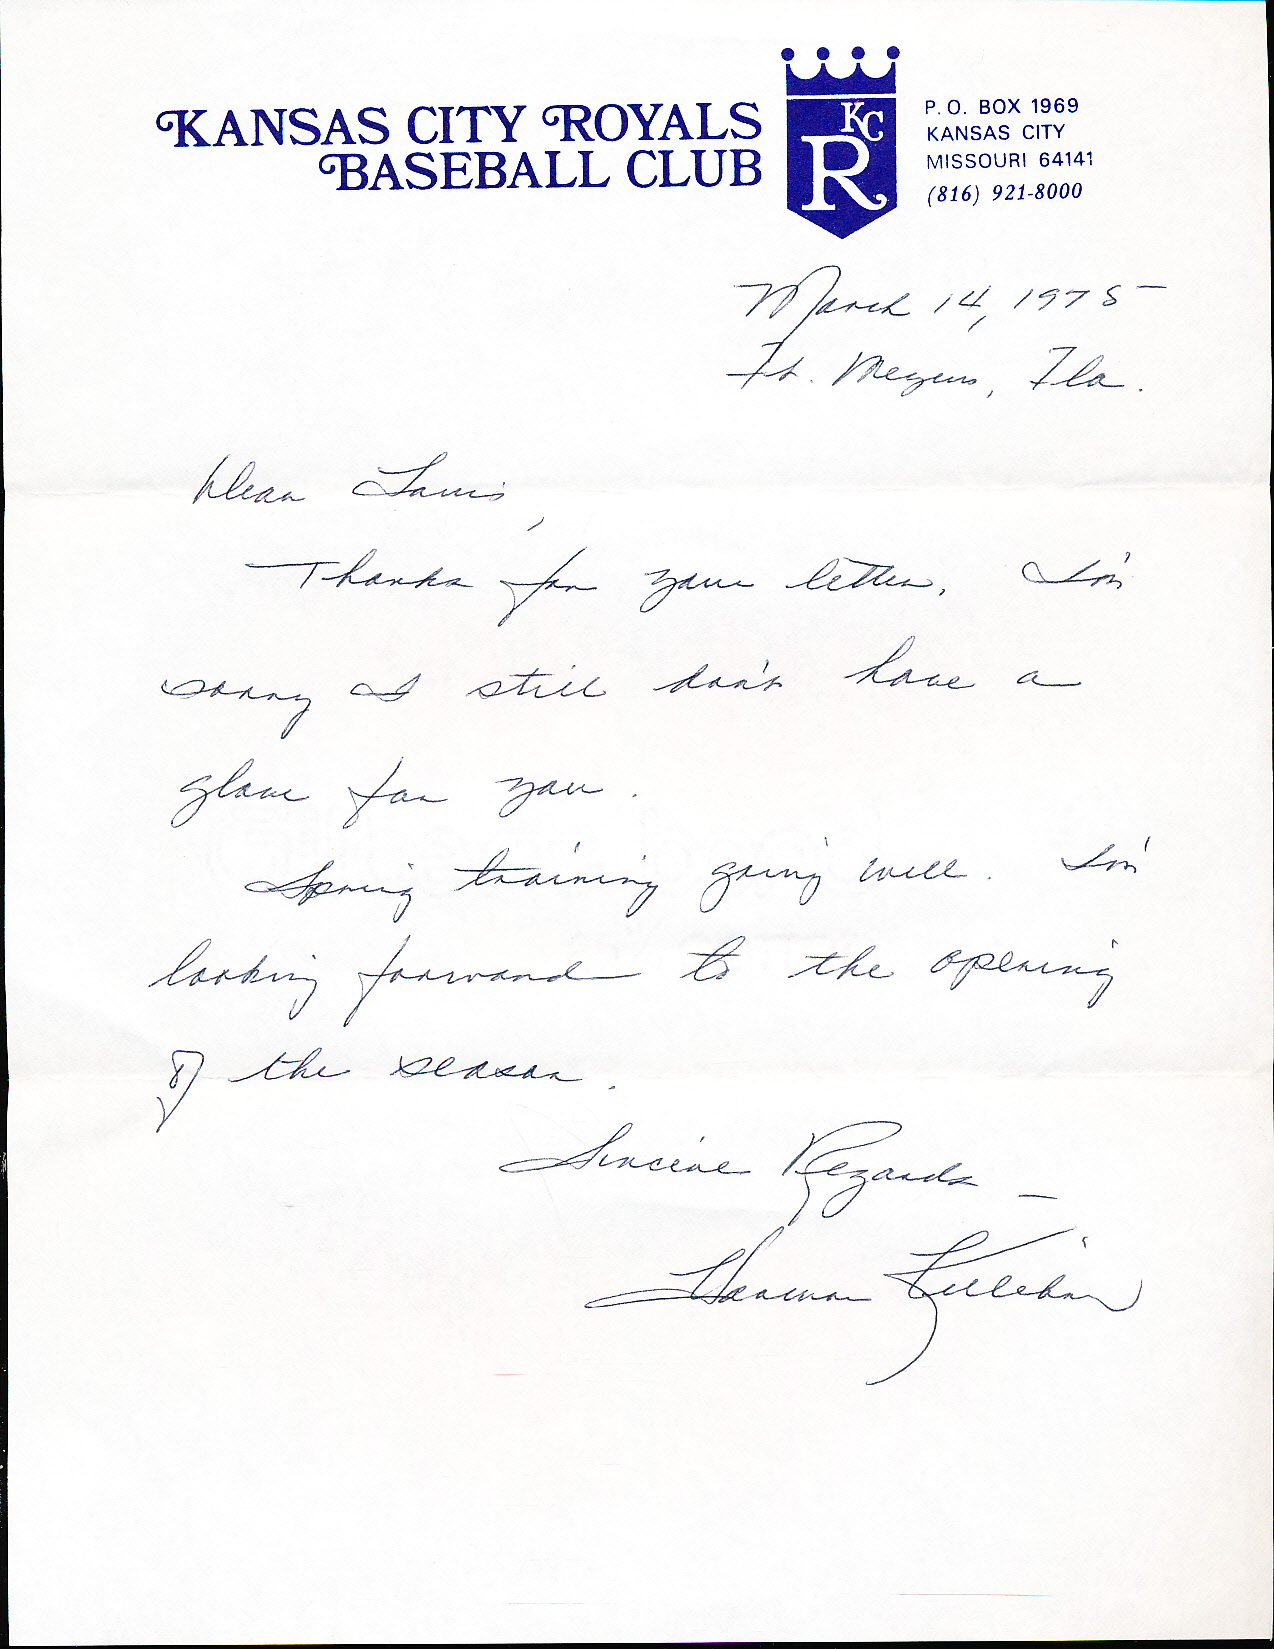 KANSAS CITY ROYALS
BASEBALL CLUB
KC
R
P.O. BOX 1969
KANSAS CITY
MISSOURI 64141
(816) 921-8000
March 14, 1975
Ft. Meyers, Fla.
Dear Louis,
Thanks for your letter. I'm
sorry I still don't have a
glove for you.
Spring training going well. I'm
looking forward to the opening
of the season.
Sincere Regards —
Harmon Killebrew